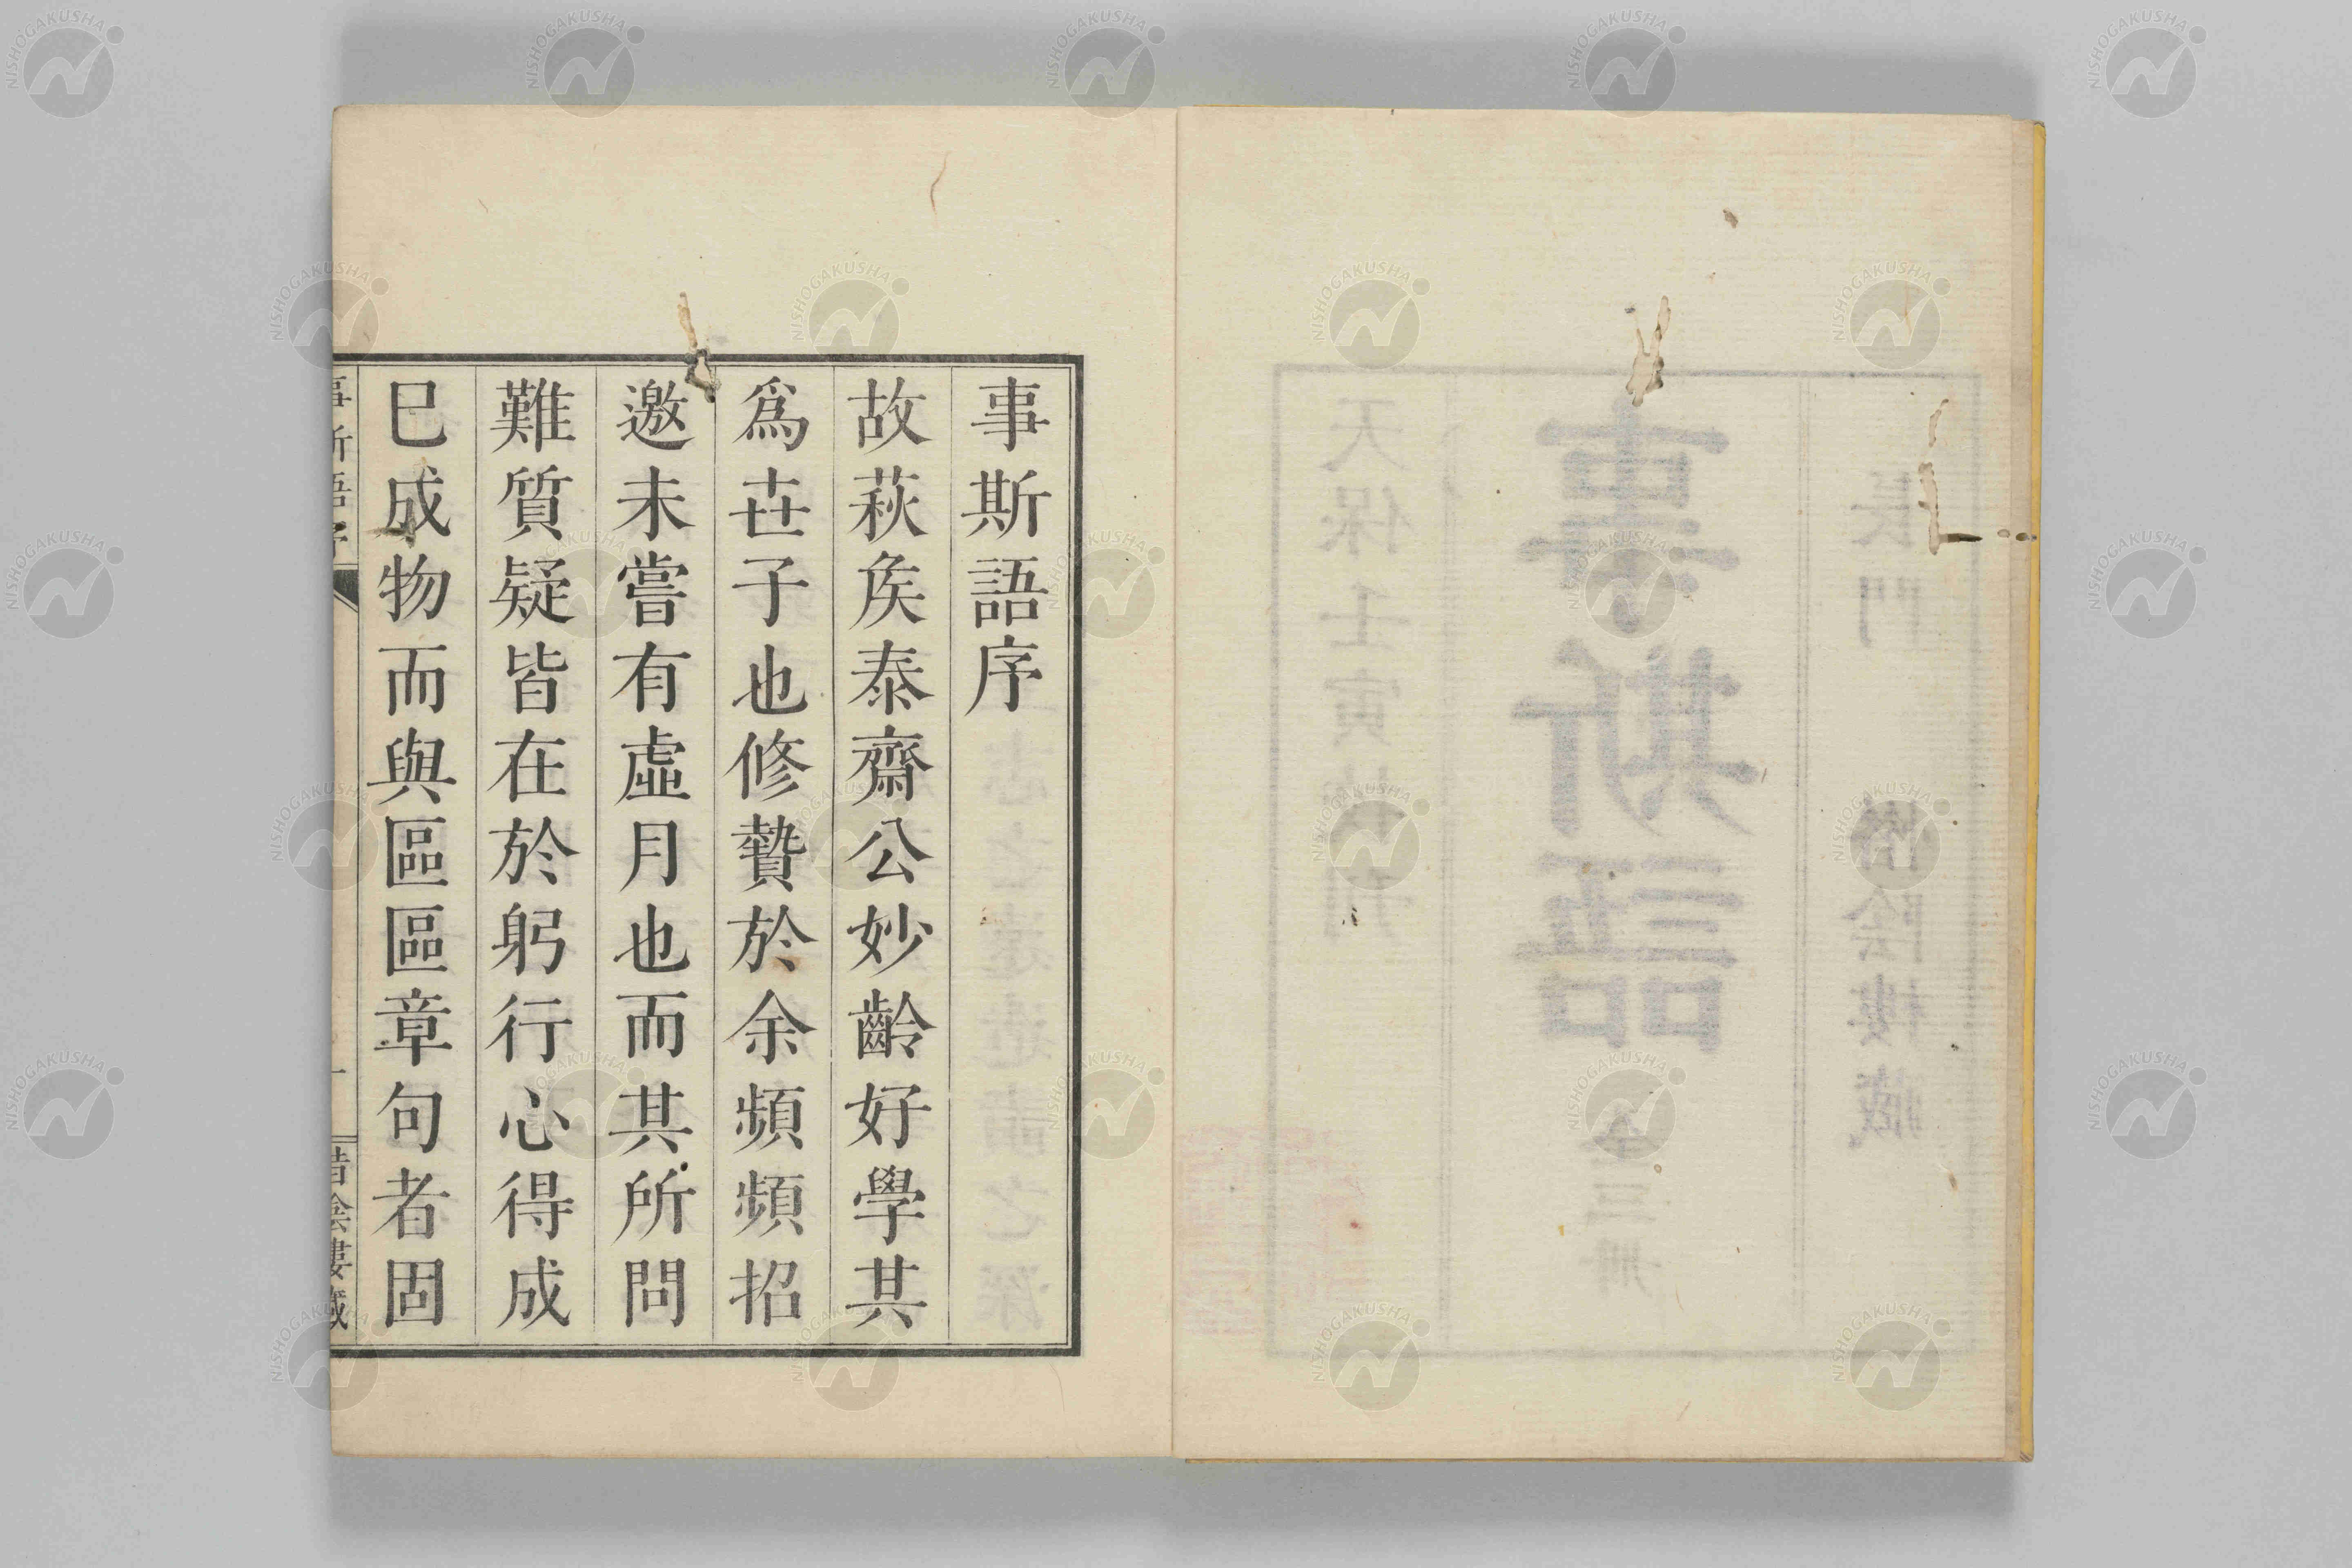 事斯語序
故萩矦泰齋公妙齡好學其
爲世子也修贄於余頻頻招
邀未嘗有虛月也而其所問
難質疑皆在於躬行心得成
已成物而與區區章句者固
事斯語序
一
惜陰樓藏
長門
惜陰樓藏
事斯語
全三冊
天保壬寅
NISHOGAKUSHA